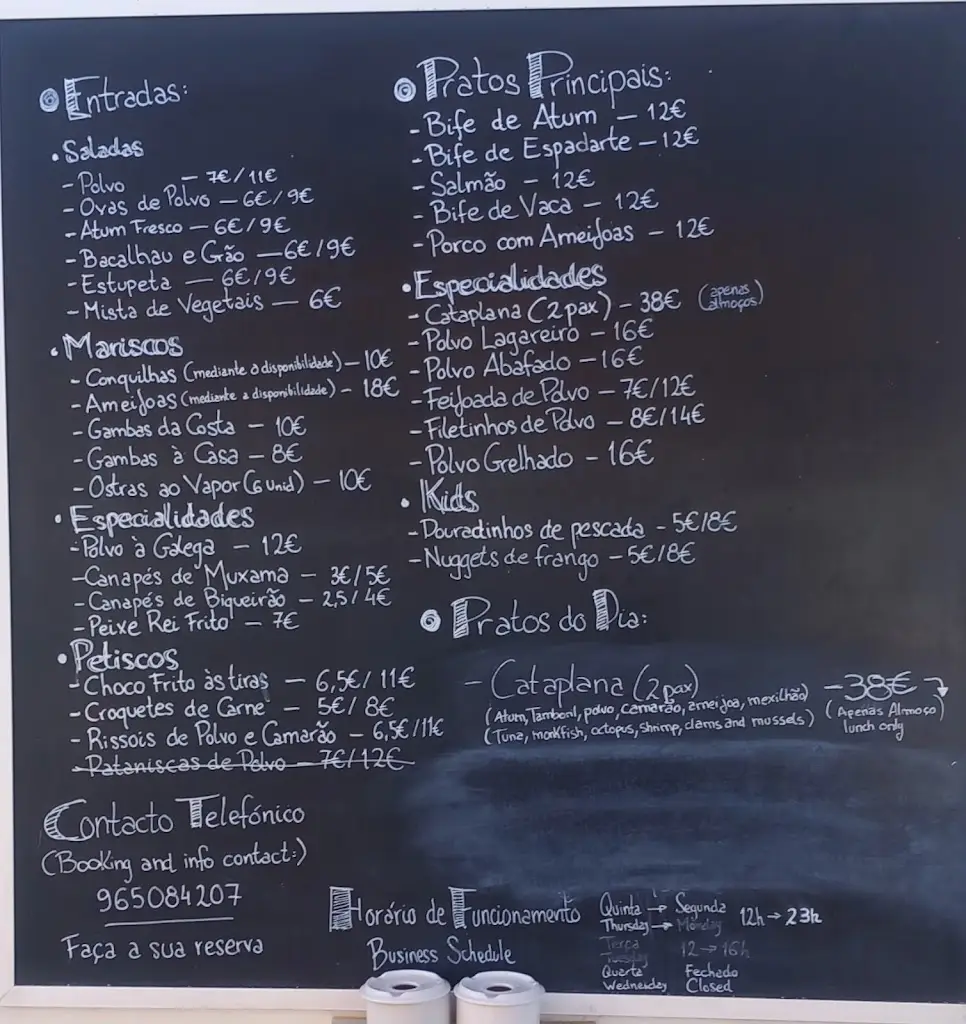 Entradas:
• Saladas
- Polvo — 7€/11€
- Ovas de Polvo — 6€/9€
- Atum Fresco — 6€/9€
- Bacalhau e Grão — 6€/9€
- Estupeta — 6€/9€
- Mista de Vegetais — 6€
• Mariscos
- Conquilhas (mediante a disponibilidade) — 10€
- Ameijoas (mediante a disponibilidade) — 18€
- Gambas da Costa — 10€
- Gambas à Casa — 8€
- Ostras ao Vapor (6 unid) — 10€
• Especialidades
- Polvo à Galega — 12€
- Canapés de Muxama — 3€/5€
- Canapés de Biqueirão — 2,5/4€
- Peixe Rei Frito — 7€
• Petiscos
- Choco Frito às tiras — 6,5€/11€
- Croquetes de Carne — 5€/8€
- Rissois de Polvo e Camarão — 6,5€/11€
- Pataniscas de Polvo — 7€/12€
Contacto Telefónico
(Booking and info contact:)
965084207
Faça a sua reserva
Pratos Principais:
- Bife de Atum — 12€
- Bife de Espadarte — 12€
- Salmão — 12€
- Bife de Vaca — 12€
- Porco com Ameijoas — 12€
• Especialidades
- Cataplana (2 pax) — 38€ (apenas almoços)
- Polvo Lagareiro — 16€
- Polvo Abafado — 16€
- Feijoada de Polvo — 7€/12€
- Filetinhos de Polvo — 8€/14€
- Polvo Grelhado — 16€
• Kids
- Douradinhos de pescada — 5€/8€
- Nuggets de frango — 5€/8€
Pratos do Dia:
- Cataplana (2 pax) — 38€
(Atum, Tamboril, polvo, camarão, ameijoa, mexilhão) (Apenas Almoço)
(Tuna, monkfish, octopus, shrimp, clams and mussels) lunch only
Horário de Funcionamento
Business Schedule
Quinta → Segunda 12h → 23h
Thursday → Monday
Terça 12 → 16h
Tuesday
Quarta Fechado
Wednesday Closed